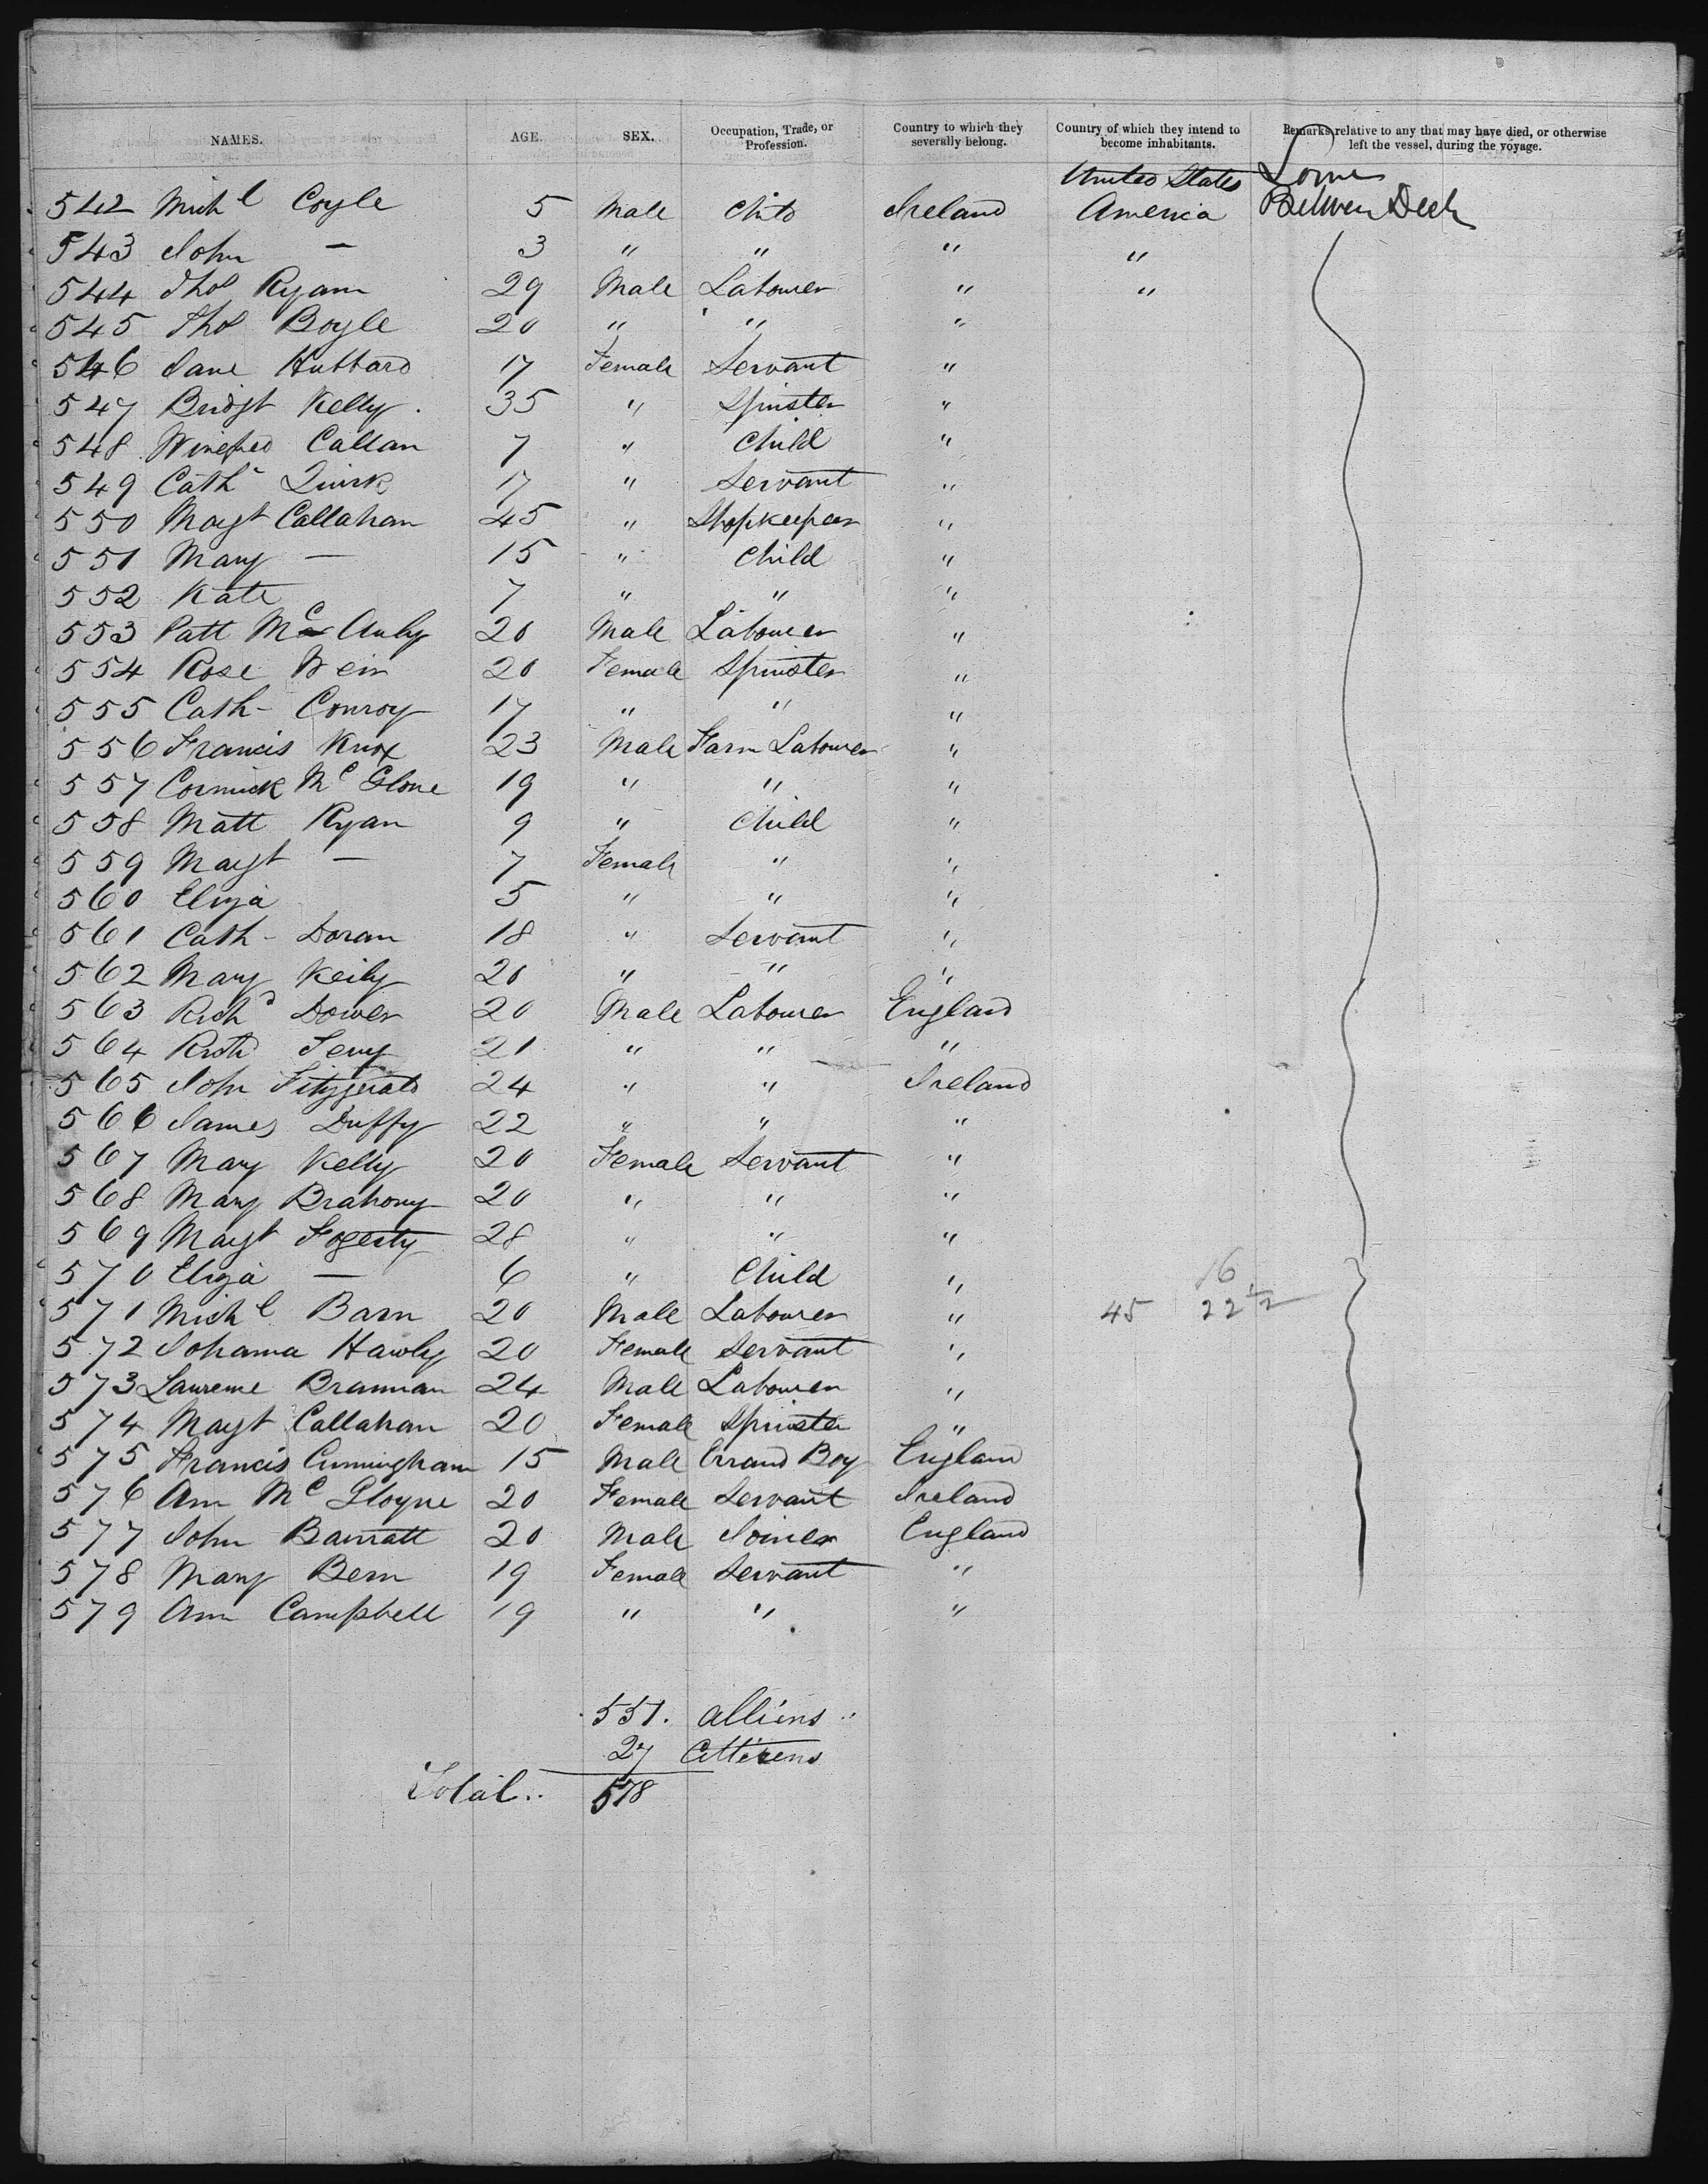 NAMES. AGE. SEX. Occupation, Trade, or Profession. Country to which they severally belong. Country of which they intend to become inhabitants. Remarks relative to any that may have died, or otherwise left the vessel, during the voyage.
United States Lower
542 Michl Coyle 5 Male Child Ireland America Between Deck
543 John — 3 " " " "
544 Thos Ryan 29 Male Labourer " "
545 Thos Boyle 20 " " "
546 Jane Hubbard 17 Female Servant "
547 Bridgt Kelly 35 " Spinster "
548 Winefred Callan 7 " Child "
549 Cath Quirk 17 " Servant "
550 Magt Callahan 45 " Shopkeeper "
551 Mary — 15 " Child "
552 Kate 7 " " "
553 Patt Mc Auly 20 Male Labourer "
554 Rose Weir 20 Female Spinster "
555 Cath- Conroy 17 " " "
556 Francis Knox 23 Male Farm Labourer "
557 Cormick Mc Glone 19 " " "
558 Matt Ryan 9 " Child "
559 Magt — 7 Female " "
560 Eliza 5 " " "
561 Cath- Doran 18 " Servant "
562 Mary Keily 20 " " "
563 Richd Dower 20 Male Labourer England
564 21 " " "
565 John Fitzgerald 24 " " Ireland
566 James Duffy 22 " " "
567 Mary Kelly 20 Female Servant "
568 Mary Brahony 20 " " "
569 Magt Fogerty 28 " " "
570 Eliza — 6 " Child "
16
571 Michl Barn 20 Male Labourer " 45 22 1/2
572 Johanna Hawly 20 Female Servant "
573 Laurence Brannan 24 Male Labourer "
574 Magt Callahan 20 Female Spinster "
575 Francis Cunningham 15 Male Errand Boy England
576 Ann Mc Gloyne 20 Female Servant Ireland
577 John Barratt 20 Male Joiner England
578 Mary Bern 19 Female Servant "
579 Ann Campbell 19 " " "
551. alliens
27 Cittizens
Total.. 578